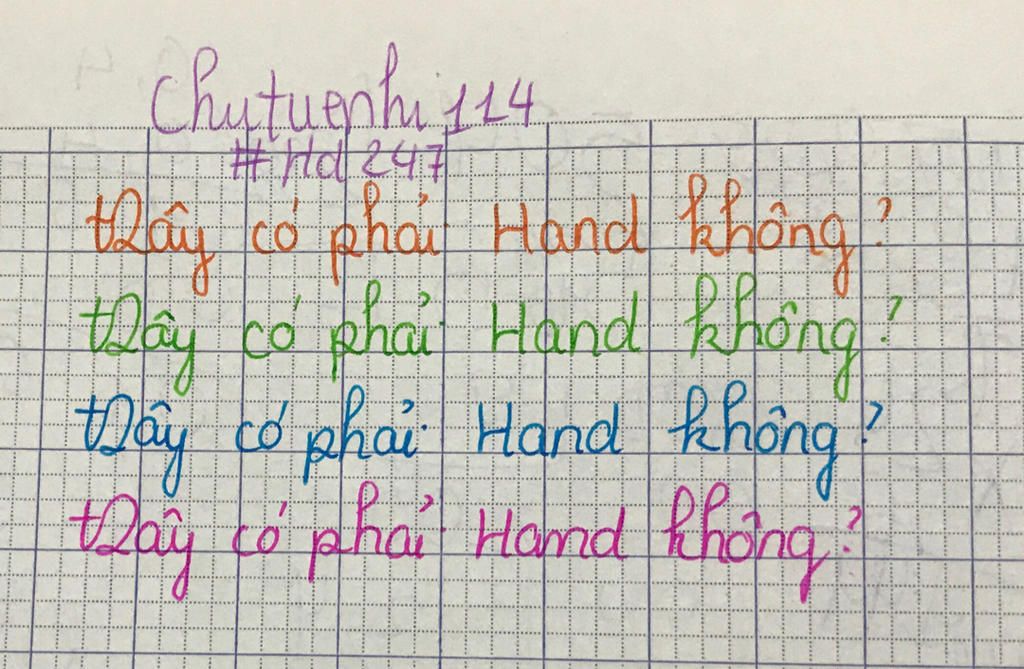 Chutuenhi 114
#Hd 247
Đây có phải Hand không?
Đây có phải Hand không?
Đây có phải Hand không?
Đây có phải Hand không?